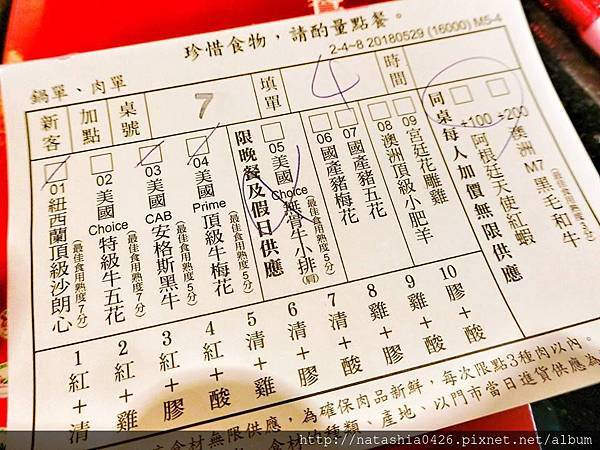 珍惜食物，請酌量點餐。
2-4-8 20180529 (16000) M5-4
鍋單、肉單
新客
加點
桌號
7
填單
4
時間
01 紐西蘭頂級沙朗心
(最佳食用熟度7分)
02 美國 Choice 特級牛五花
(最佳食用熟度7分)
03 美國 CAB 安格斯黑牛
(最佳食用熟度5分)
04 美國 Prime 頂級牛梅花
(最佳食用熟度5分)
限晚餐及假日供應
05 美國 Choice 無骨牛小排(肩)
06 國產豬梅花
07 國產豬五花
08 澳洲頂級小肥羊
09 宮廷花雕雞
同桌每人加價無限供應
+100 阿根廷天使紅蝦
+200 澳洲 M7 黑毛和牛
1 紅+清
2 紅+雞
3 紅+膠
4 紅+酸
5 清+雞
6 清+膠
7 清+酸
8 雞+膠
9 雞+酸
10 膠+酸
食材無限供應，為確保肉品新鮮，每次限點3種肉以內。
種類、產地、以門市當日進貨供應為
http://natashia0426.pixnet.net/album